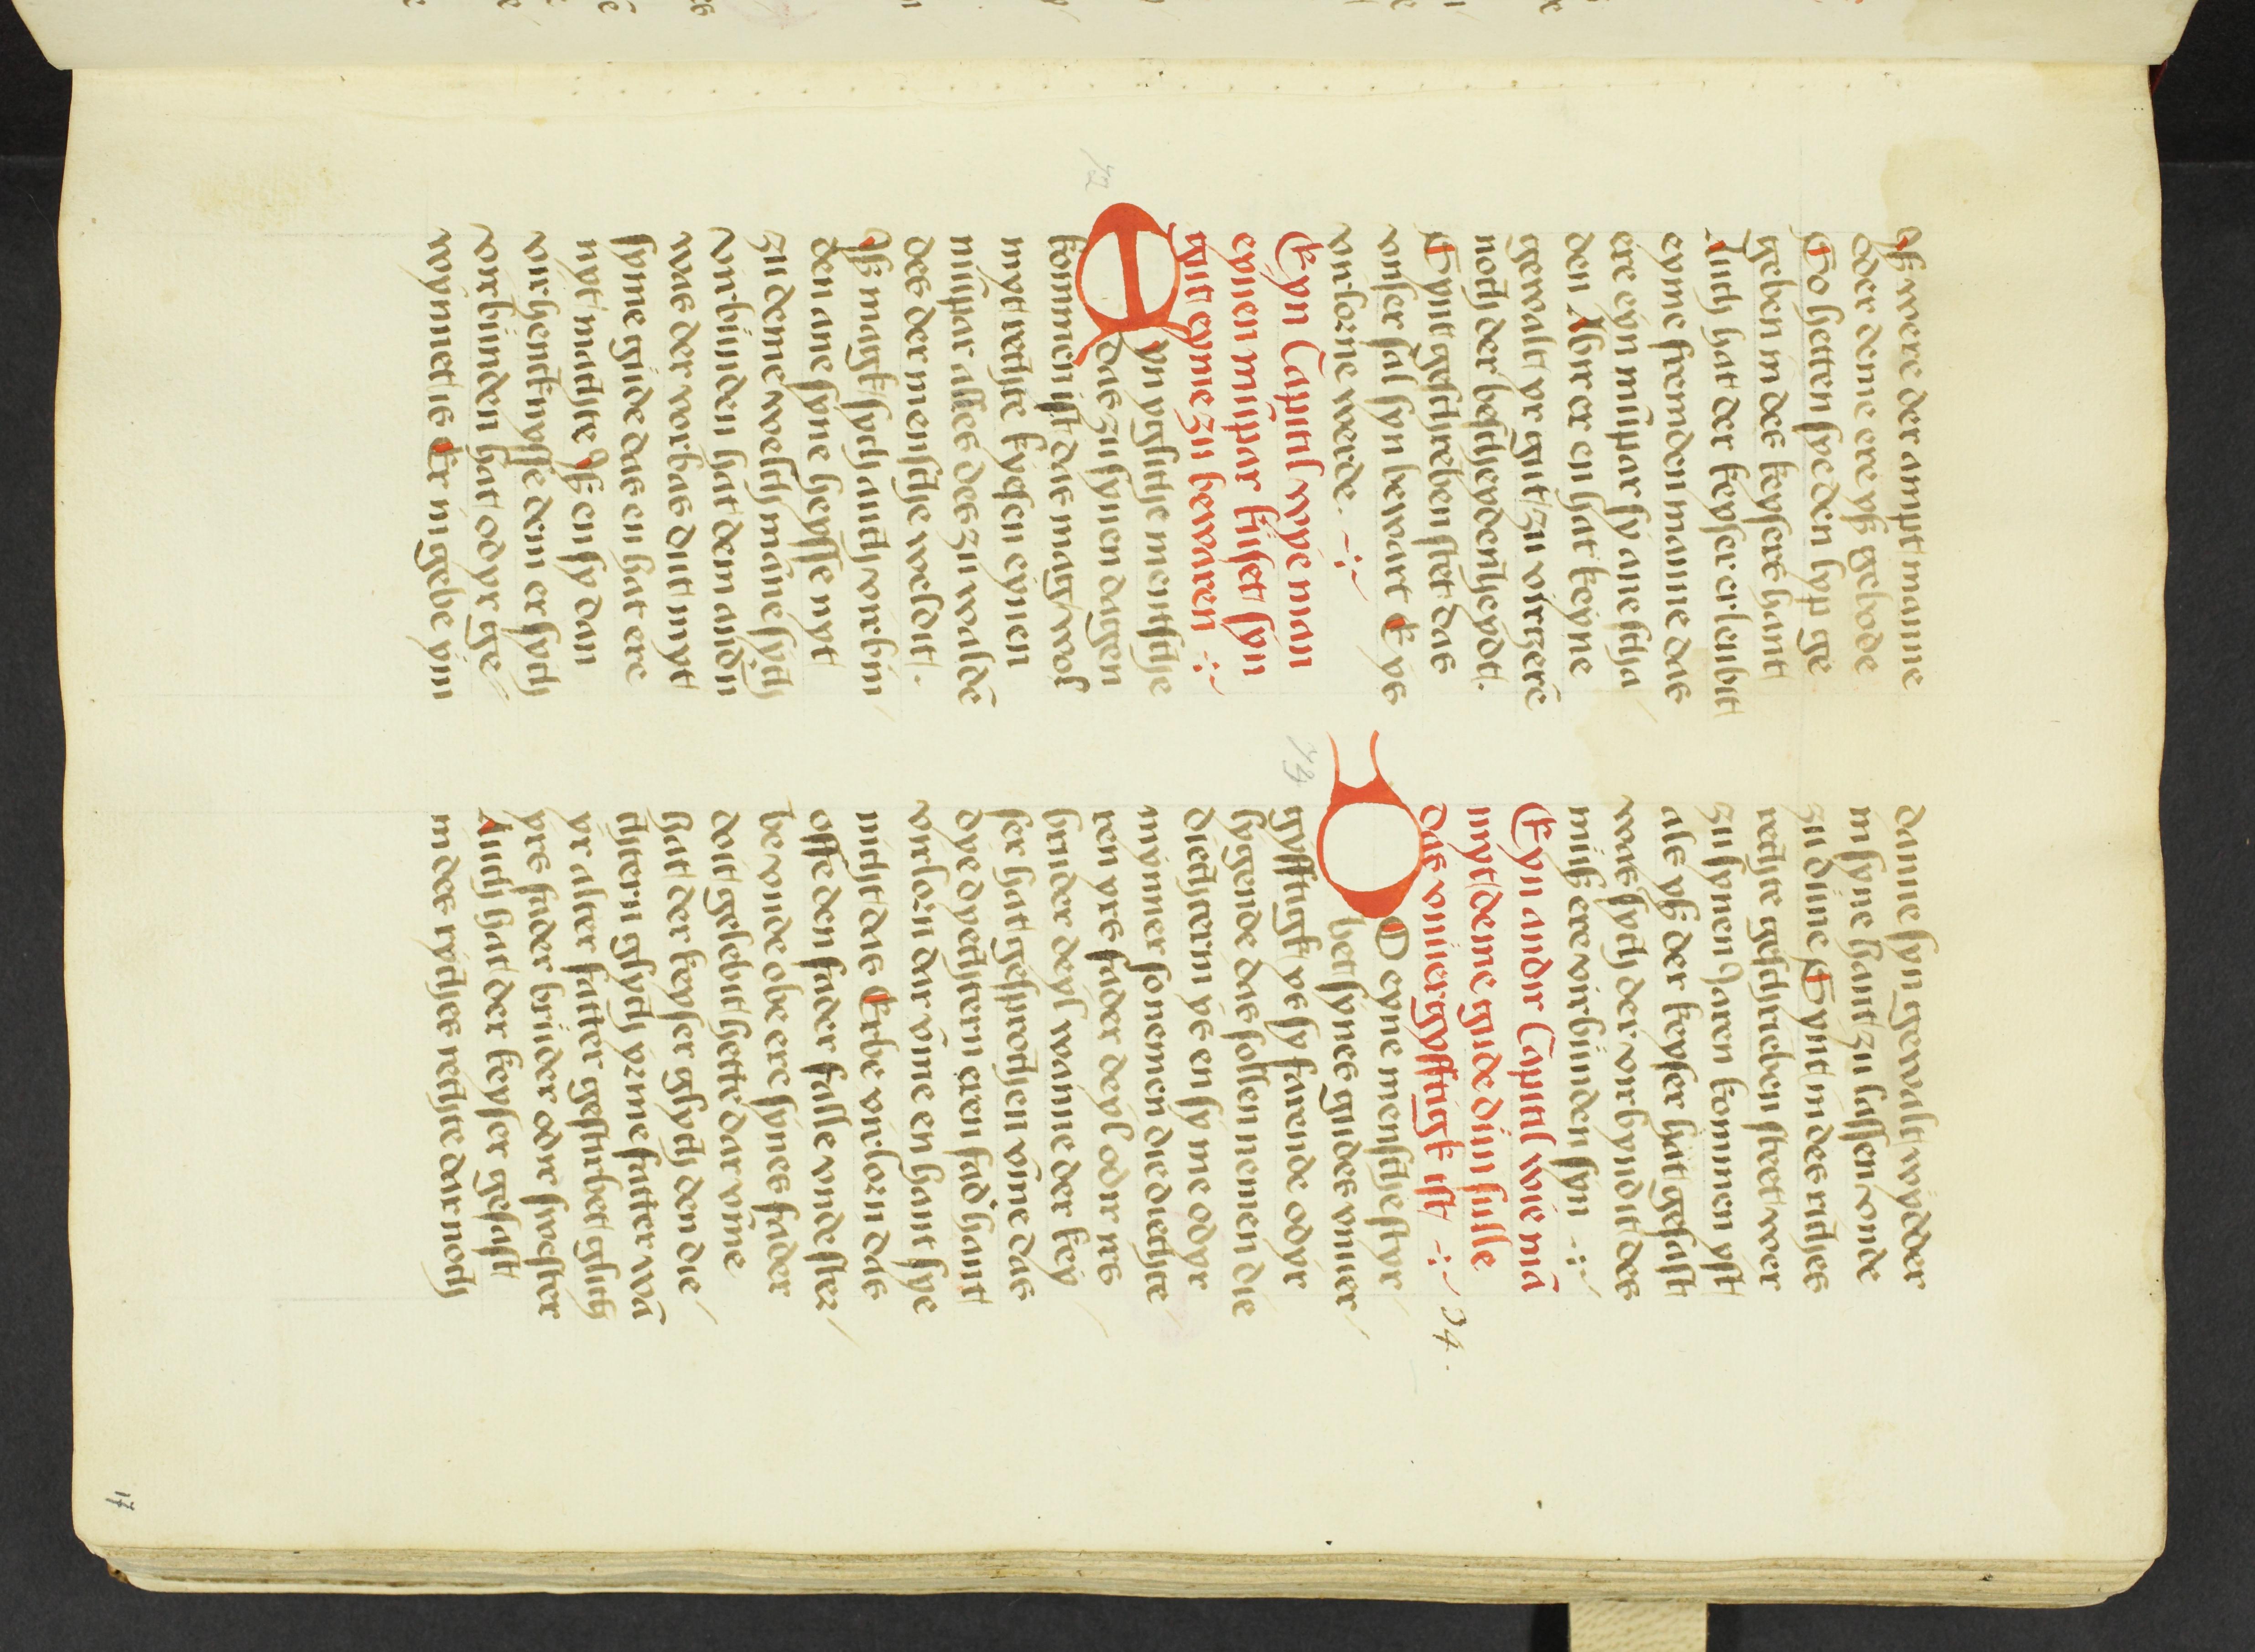 Is were der amptmanne
oder deme ere yß gebode
So hetten sye den lyp ge
geben in des keysers hant
Auch hat der keyser erleubit
eyme fremden manne das
ere eyn munpar sy ane sthu
den Aber er en hat keyne
gewalt yr gut zu virzerē
noch der beschydenheydt.
Synt geschreben stet das
unser sal syn bewart E ys
vorlorne werde .
Eyn Capitul wye man
eynen munpar kuset syn
gut eyme zu bewaren
Eyn yglithe mensthe
das zu synen dagen
kommen ist das mag wol
myt rechte kysen eynen
munpar alles des zu waldē
des der mensche weldit.
Is magk sych auch vorbin
den ane syne heysse myt
zu deme welch mane sych
vorbunden hat dem andn
wes der vorbas dut myt
syme gude das en hat ere
nyt machte Is en sy dan
virhenckenysse dem er sych
vorbunden hat odyr ge
wynnet is Er in gebe ym
danne syn gewalt wydder
in syne hant zu lassen vnde
zu dune Synt in des riches
rechte geschreben stet wer
zu synen Jaren kommen yst
als yß der keyser hat gesast
was sych der vorbyndit des
muß ere virbunden syn
Eyn andir Capitul wie mā
myt deme gude dun sulle
das vnuergyfftigk ist 24.
Do eyne mensthe styr
bet synes gudes vnuer
gyfftigk ys sy farende odyr
lygende das sollen nemen die
dochtern ys en sy me odyr
mynner sonemen die dochte
ren yre fader deyl odir irs
bruder deyl wanne der key
ser hat gesprochen vmme das
dye dochtern eren fad' hant
virlorn dar vmme en hant sye
nicht das Erbe virlorn das
off den fader falle vnde ster
be vnde obe ere synes fader
doit gelebit hette dar vme
hat der keyser glych den die
chtern glych yrme fatter wā
yr alter fatter gestirbet glich
yrs fader bruder odir swester
Auch hat der keyser gesast
in des riches rechte dar noch
72
73
17